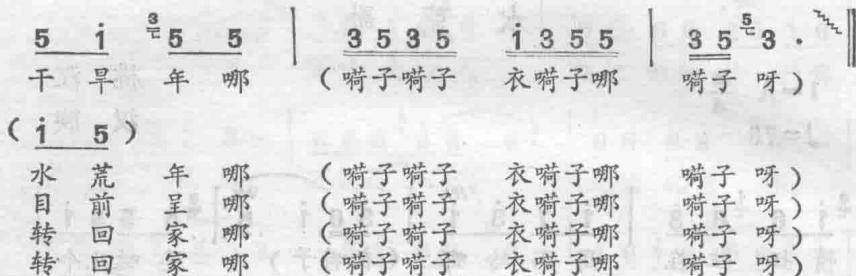 5 i 3 5 5 | 3 5 3 5 i 3 5 5 | 3 5 5 3 .
干 旱 年 哪 ( 嗬子嗬子 衣嗬子哪 嗬子 呀 )
( i 5 )
水 荒 年 哪 ( 嗬子嗬子 衣嗬子哪 嗬子 呀 )
目 前 呈 哪 ( 嗬子嗬子 衣嗬子哪 嗬子 呀 )
转 回 家 哪 ( 嗬子嗬子 衣嗬子哪 嗬子 呀 )
转 回 家 哪 ( 嗬子嗬子 衣嗬子哪 嗬子 呀 )